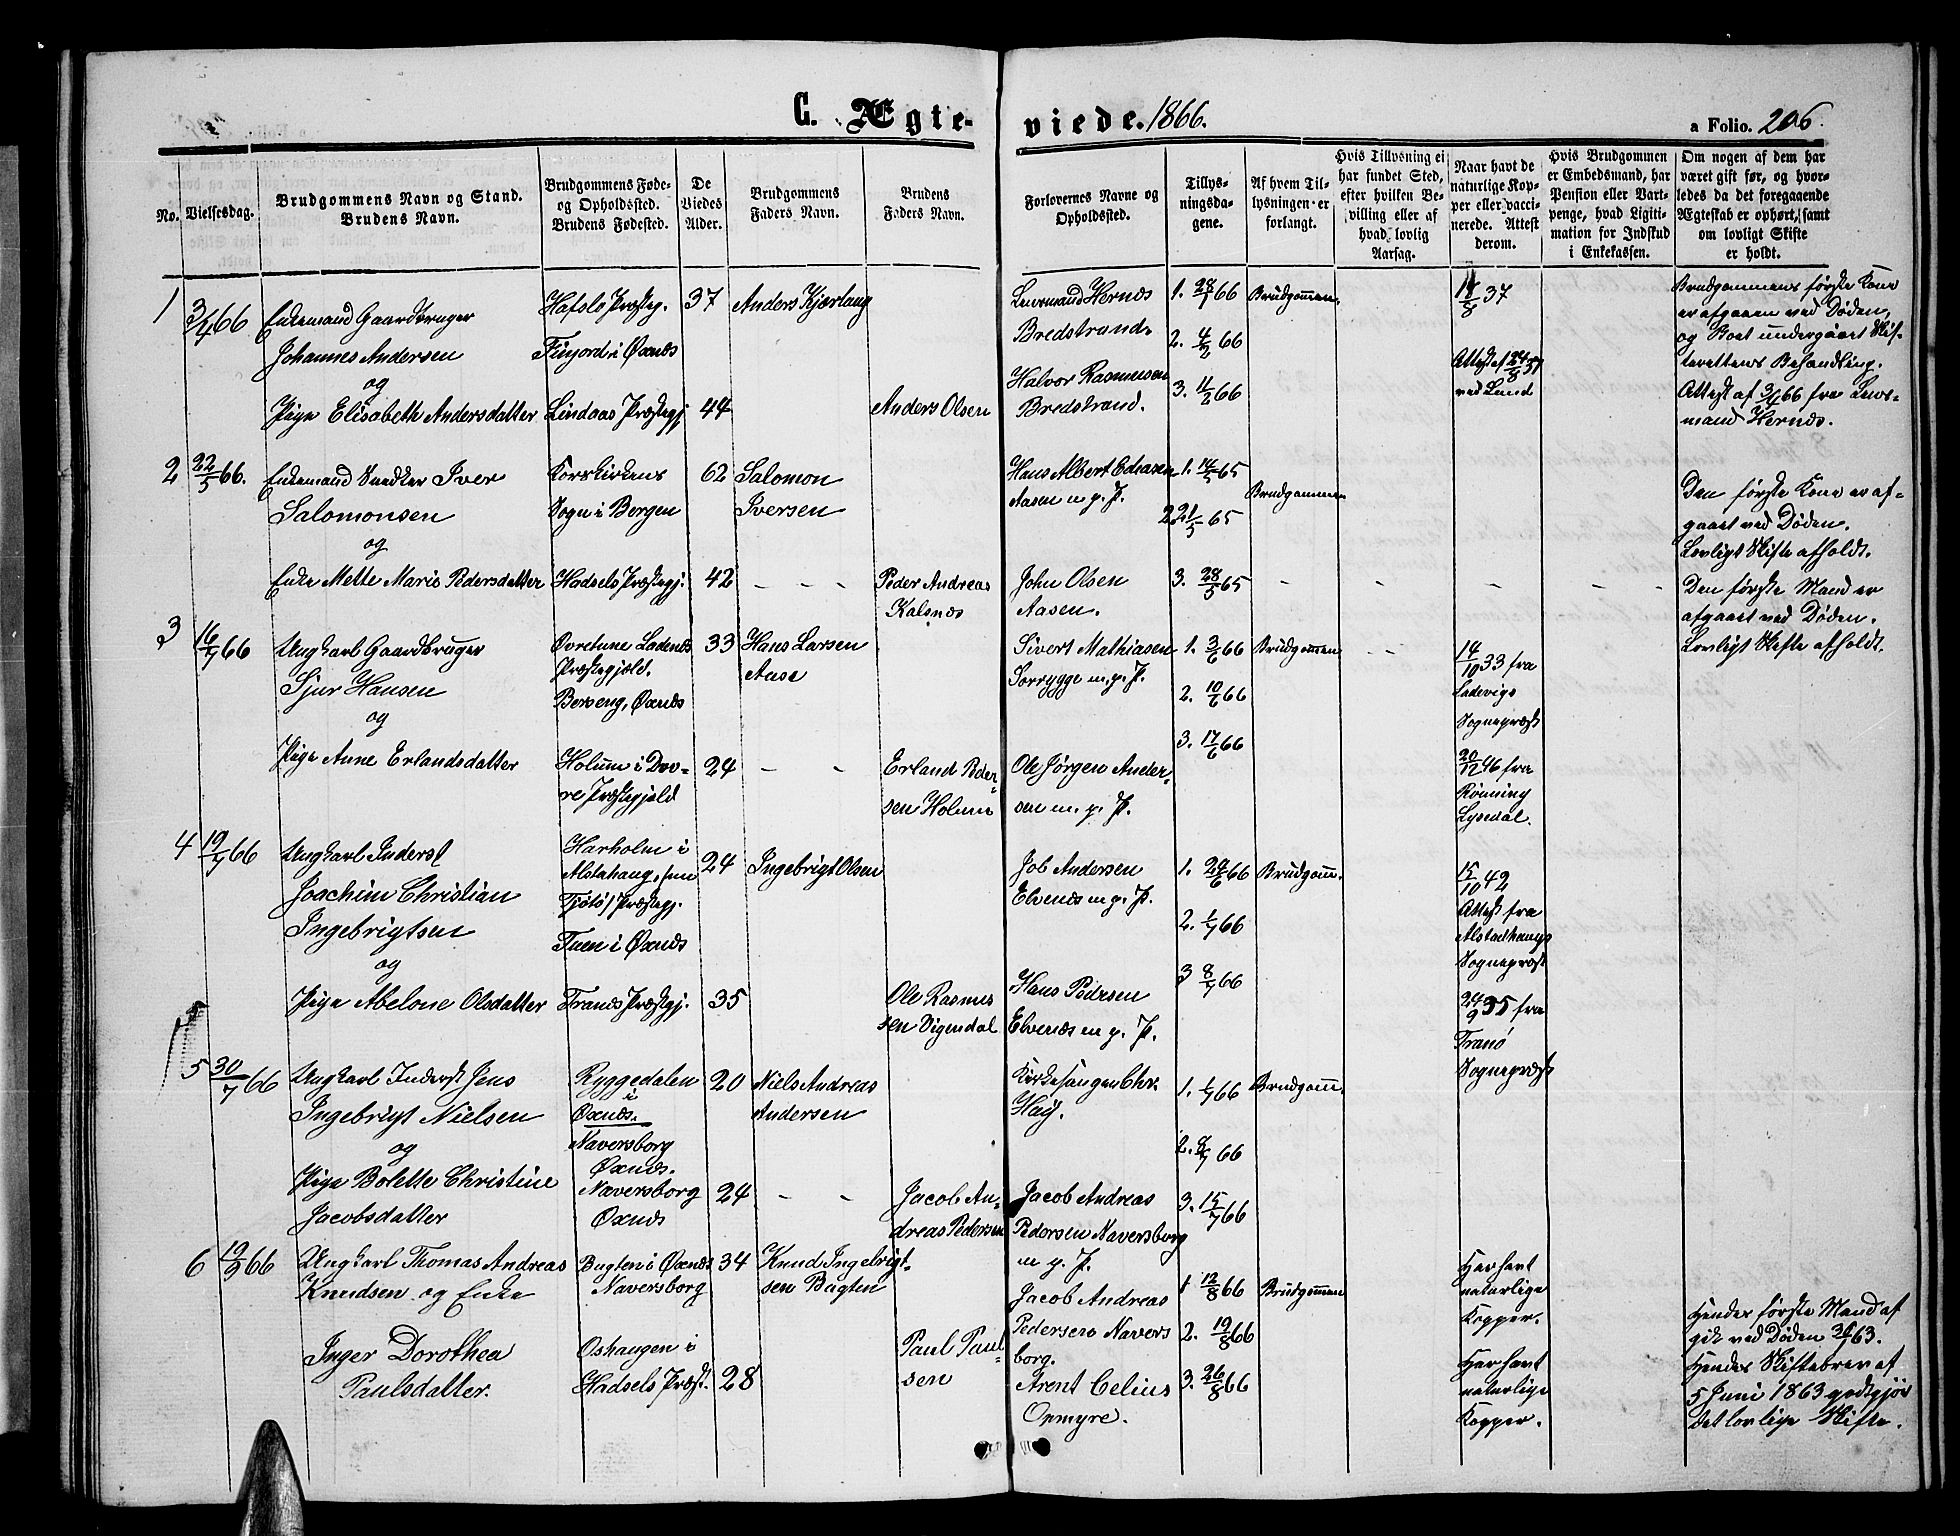 C. Ægteviede. 1866.
a Folio. 206.
No.
Vielsesdag.
Brudgommens Navn og Stand.
Brudens Navn.
Brudgommens Føde-
og Opholdssted.
Brudens Fødested.
De
Viedes
Alder.
Brudgommens
Faders Navn.
Brudens
Faders Navn.
Forlovernes Navne og
Opholdssted.
Tillys-
ningsda-
gene.
Af hvem Til-
lysningen er
forlangt.
Hvis Tillysning ei
har fundet Sted,
efter hvilken Be-
villing eller af
hvad lovlig
Aarsag.
Naar havt de
naturlige Kop-
per eller vacci-
nerede. Attest
derom.
Hvis Brudgommen
er Embedsmand, har
Pension eller Vart-
penge, hvad Ligiti-
mation for Indskud
i Enkekassen.
Om nogen af dem har
været gift før, og hvor-
ledes da det foregaaende
Ægteskab er ophørt, samt
om lovligt Skifte
er holdt.
1 3/4 66
Enkemand Gaardbruger
Johannes Andersen
og
Pige Elisabeth Andersdatter
Hafslo Præsteg.
Finjord i Øxnes
Lindaas Præstegj.
37
44
Anders Kjærlang
Anders Olsen
Lensmand Hernes
Bredstrand.
Halvor Rasmussen
Bredstrand.
1. 28/1 66
2. 4/2 66
3. 11/2 66
Brudgommen.
18/8 37
Attest af 24/8 37
ved Lund
Brudgommens første Kone
er afgaaen ved Døden,
og Boet undergaaet Skif-
terettens Behandling.
Attest af 3/4 66 fra Lens-
mand Hernes.
2 22/5 66.
Enkemand Snedker Iver
Salomonsen
og
Enke Mette Marie Pedersdatter
Korskirkens
Sogn i Bergen
Hadsels Præstegj.
62
42
Salomon
Iversen
Peder Andreas
Kalsnes
Hans Albert Edeasen
Aasen m. p. P.
John Olsen
Aasen.
1. 14/5 65
2. 21/5 65
3. 28/5 65
Brudgommen
Den første Kone er af-
gaaet ved Døden.
Lovligt Skifte afholdt.
Den første Mand er
afgaaet ved Døden.
Lovligt Skifte afholdt.
3 16/7 66
Ungkarl Gaardbruger
Sjur Hansen
og
Pige Anne Erlandsdatter
Præstegjæld.
Berseng, Øxnes
Holum i Dov-
re Præstegjeld
33
24
Hans Larsen
Erland Peder-
sen Holum
Sivert Mathiasen
Sorrygge m. p. P.
Ole Jørgen Ander-
sen m. p. P.
1. 3/6 66
2. 10/6 66
3. 17/6 66
Brudgommen
14/10 33 fra
Ladevigs
Sognepræst
20/12 46 fra
Rønning
Lysedal.
4 19/7 66
Ungkarl Inderst
Joachim Christian
Ingebrigtsen
og
Pige Abelone Olsdatter
Harholm i
Alstahaug, (nu
Tjøtø) Præstegj.
Tuen i Øxnes
Tranøs Præstegj.
24
35
Ingebrigt Olsen
Ole Rasmus
sen Sigendal
Job Andersen
Elvenes m. p. P.
Hans Pedersen
Elvenes m. p. P.
1. 24/6 66
2. 1/7 66
3 8/7 66
Brudgomm.
15/10 42
Attest fra
Alstadhaugs
Sognepræst
24/9 35 fra
Tranø
Sognepræst
5 30/7 66
Ungkarl Inderst Jens
Ingebrigt Nielsen
og
Pige Bolette Christine
Jacobsdatter
Ryggedalen
i
Øxnes.
Naversborg
Øxnes.
Naversborg
Øxnes
20
24
Niels Andreas
Andersen
Jacob An-
dreas Pedersen
Kirkesanger Chr.
Høy.
Jacob Andreas
Pedersen Naversborg
m. p. P.
1. 1/7 66
2. 8/7 66
3. 15/7 66
Brudgomm.
6 19/9 66
Ungkarl Thomas Andreas
Knudsen og Enke
Inger Dorothea
Paulsdatter.
Bugten i Øxnes
Naversborg
Oshaugen i
Hadsels Præst.
34
28
Knud Ingebrigt-
sen Bugten
Paul Paul-
sen
Jacob Andreas
Pedersen Navers
borg.
Arent Celius
Ormyre.
1 12/8 66
2. 19/8 66
3. 26/8 66
Brudgommen
Har havt
naturlige
Kopper.
Har havt
naturlige
Kopper.
Hendes første Mand af
gik ved Døden 30/1 63.
Hendes Skiftebrev af
5 Juni 1863 godtgjør
det lovlige Skifte.